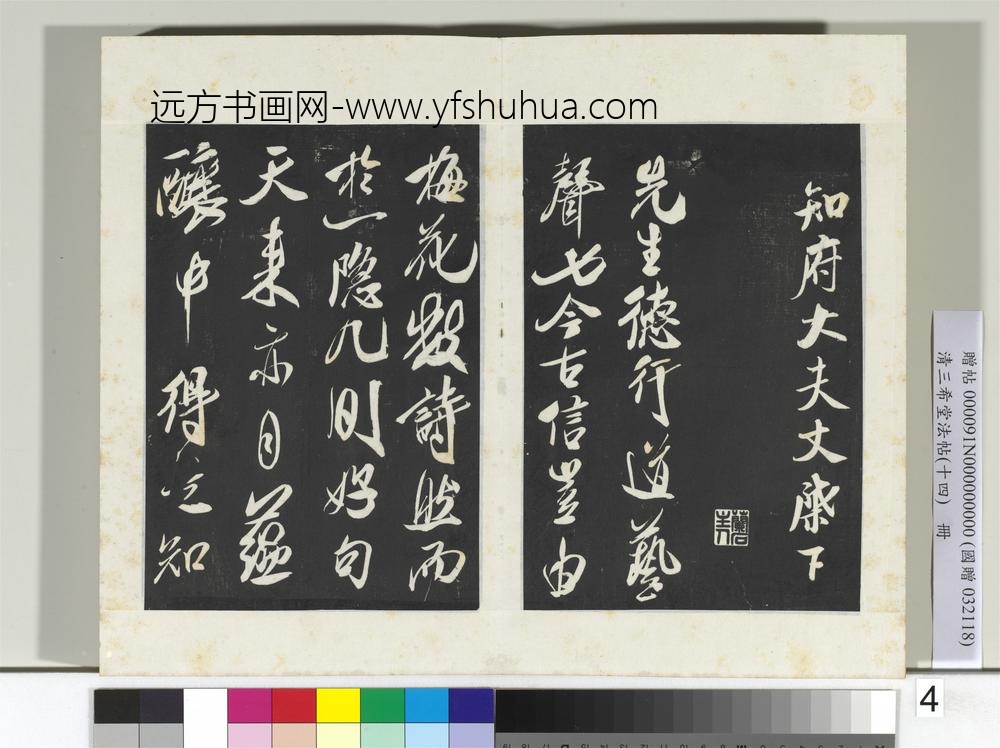 远方书画网-www.yfshuhua.com
知府大夫丈棨下
先生德行道藝
聲也今古信豈由
梅花數詩然而
於一隱几則好句
天來亦自蘊
釀中得之知
贈帖 000091N000000000 (國贈 032118)
清三希堂法帖(十四) 冊
4